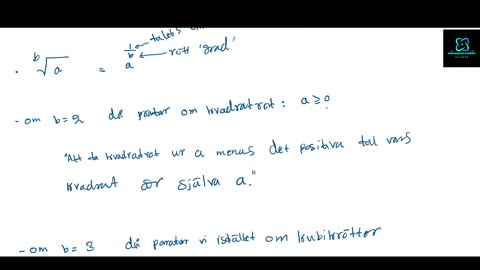 talets
· b√a = a^(1/b) ← rött 'grad'
- om b=2 då pratar om kvadratrot : a ≥ 0
"Att ta kvadratrot ur a menas det positiva tal vars
kvadrat är själva a."
- om b = 3 då paratar vi istället om kubikrötter